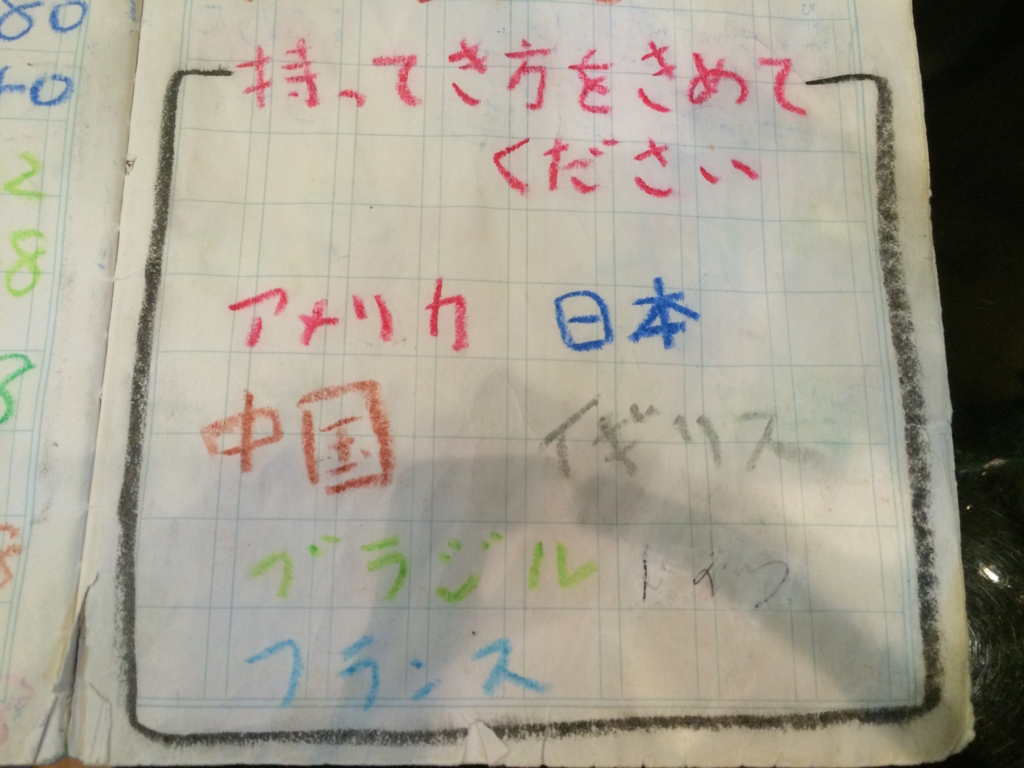 80
40
2
8
持ってき方をきめて
ください
アメリカ 日本
中国 イギリス
ブラジル ドイツ
フランス